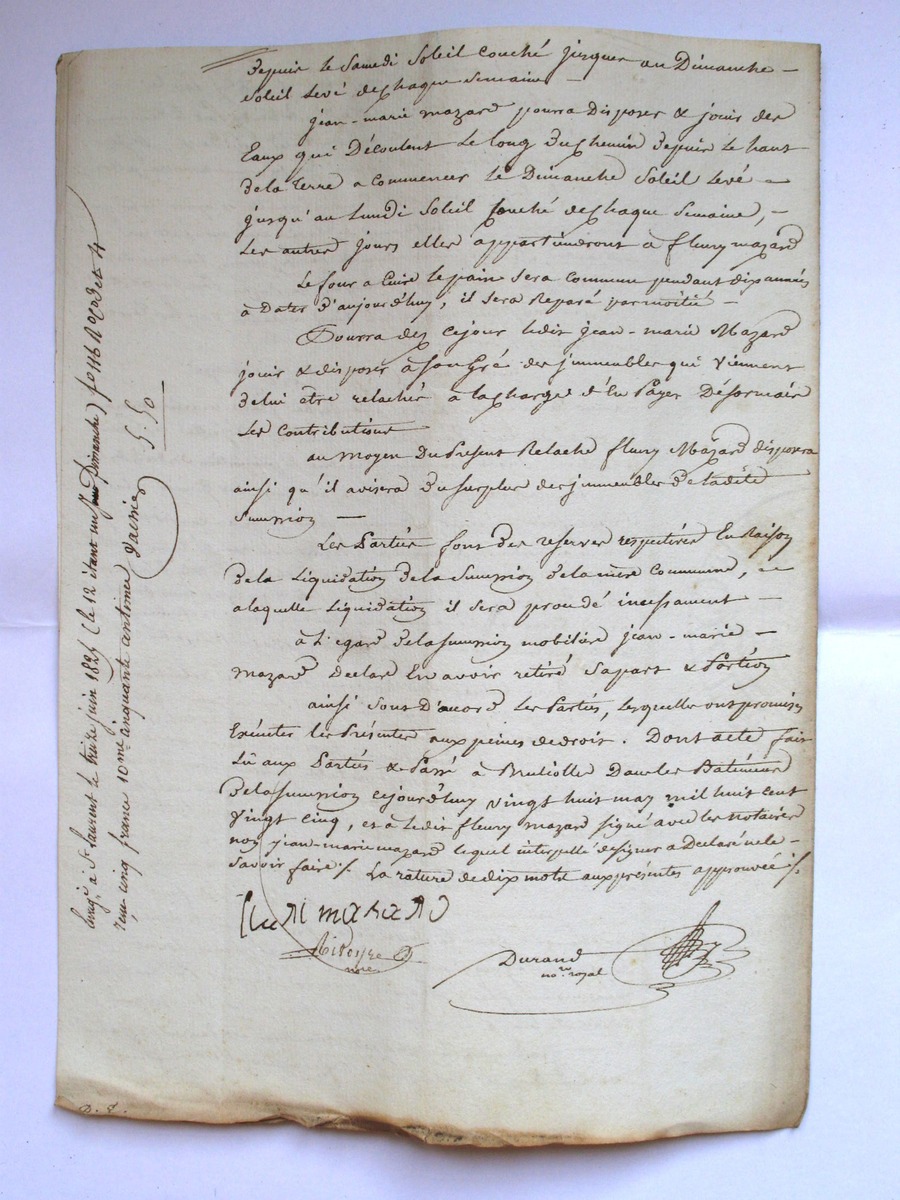 Depuis le Samedi Soleil Couché jusques au Dimanche –
Soleil Levé de chaque Semaine –
jean-marie mazard pourra Disposer & jouir des
Eaux qui Découlent Le long Du chemin Depuis le haut
de la terre a commencer le Dimanche Soleil Levé –
jusqu'au Lundi Soleil Couché de chaque Semaine, –
Les autres jours elles appartiendront à fleury mazard
Le four a Cuire le pain Sera Commun pendant dix années
à Dater d'aujourd'huy, il Sera Reparé par moitié –
Pourra dez cejour ledit jean-marie Mazard
jouir & disposer à son Gré des jmmeubles qui Viennent
de lui être relachés à la charge d'en Payer Désormais
Les Contributions
au moyen Du Present Relache fleury Mazard disposera
ainsi qu'il avisera Du surplus des jmmeubles De ladite
Suession –
Les Parties font des reserves respectives En Raison
De la Liquidation De la Suession De la mère Commune, –
a laquelle Liquidation il sera proudé incessament –
à L'egard De la Suession mobiliere jean-marie –
Mazard Declare En avoir retiré Sa part & Portion
ainsi Sont D'acord Les Parties, Lesquelle ont promises
Exécuter les Présentes aux peines de droit. Dont acte fait
Lû aux Parties & Passé à Bruliolle Dans les Batiments
De la Suession cejourd'huy vingt huit may mil huit cent
vingt cinq, et à ledit fleury mazard signé avec les notaires
non jean-marie mazard lequel interpellé de signer a Declaré ne le
Savoir faire ./. La rature de dix mots aux présentes approuvée ./.
fleuri mazard
nre
Durand
nore royal
Enrgé à St Laurent le treize juin 1825 (le 12 étant un Dimanche) fo 116 Ro Code et 4
reçu cinq francs 10me cinquante centimes
5.50
D. E.